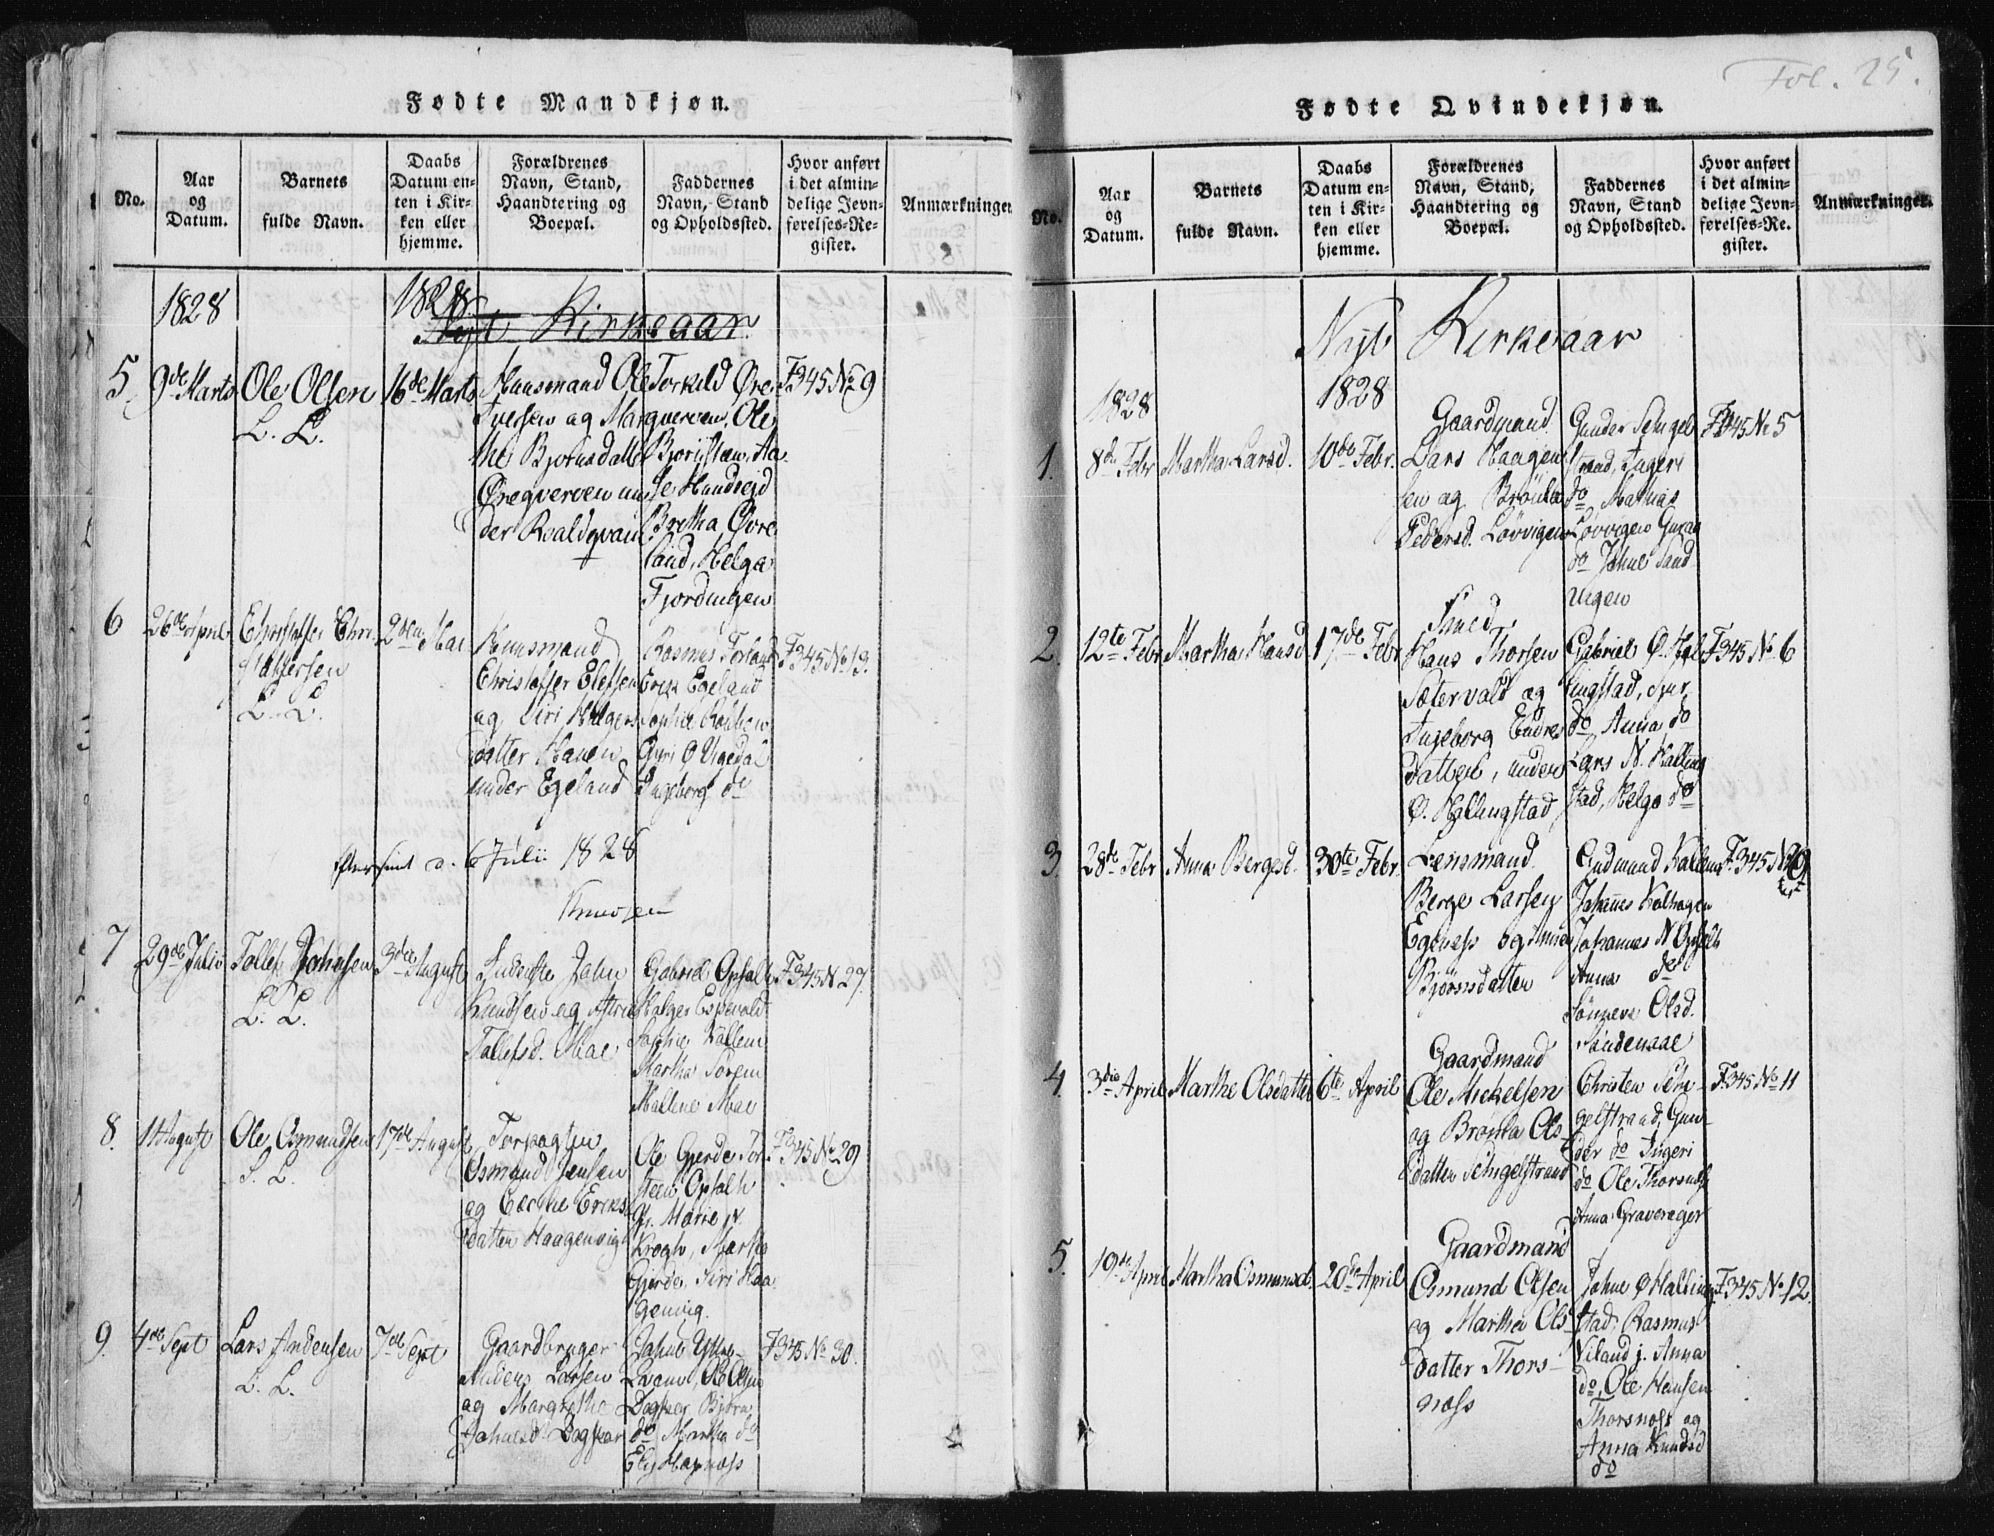 Fødte Mandkjøn.
No.
Aar
og
Datum.
Barnets
fulde Navn.
Daabs
Datum en-
ten i Kir-
ken eller
hjemme.
Forældrenes
Navn, Stand,
Haandtering og
Boepæl.
Faddernes
Navn, Stand
og Opholdssted.
Hvor anført
i det almin-
delige Jevn-
førelses-Re-
gister.
Anmærkninger
1828
1828.
Nyt Kirkeaar
5
9de Marts
Ole Olsen
L. L.
16de Marts
Huusmand Ole
Iversen og Mar
the Bjørnsdatter
Øreqverven un
der Roaldqvam
Torkild Øre
qverven, Ole
Bjørn
Bretha Øvre
land, Helga
Fjordungen
F345 No 9
6
26de April
Christoffer Chri
stoffersen
L. L.
2den Mai
Huusmand
Christoffer Elefsen
og Siri Holgers
datter Hauen
under Egeland
Rasmus
Erik Egeland
Sophie
Guri Ø
Ingeborg do
F345 No 13.
6 Julii 1828
7
29de Julii
Tollef Johnsen
L. L.
3die August
John
Knudsen og Astrie
Tollefsd. Moe
Gabriel Opsalt
Holger Espevold
Sophie Kallem
Martha
Mallene Moe
F345 N 27.
8.
11 August
Ole Osmundsen
L. L.
17de August
Osmund Jensen
og Cecilie Eriks
datter Haagenvig
Ole Gjerde Tor
steen Opsalt
Marie N.
Krogh, Martha
Gjerde, Siri Haa
genvig.
F345 No 29
9
4de Sept
Lars Andersen
L. L.
7de Sept
Gaardbruger
Anders Larsen
og Margrethe
Johnesd. Dogskar
Johne Yttre
Ole Olsen
Dogskar, Bjørn
do Martha do
F345 No 30.
Fol. 25.
Fødte Qvindekjøn.
No.
Aar
og
Datum.
Barnets
fulde Navn.
Daabs
Datum en-
ten i Kir-
ken eller
hjemme.
Forældrenes
Navn, Stand,
Haandtering og
Boepæl.
Faddernes
Navn, Stand
og Opholdssted.
Hvor anført
i det almin-
delige Jevn-
førelses-Re-
gister.
Anmærkninger.
Nyt Kirkeaar
1828
1828
1.
8de Febr
Martha Larsd.
10de Febr.
Gaardmand
Lars Haagen
sen og Brønla
Pedersd. Løvvigen
Gunder Sengel
strand, Ingeri
do Mathias
Løvvigen Guroe
do Johne Sand
vigen
F345 No 5
2.
12te Febr
Martha Hansd
17de Febr
Smed,
Hans Thorsen
Sætervold og
Ingeborg Endres
datter, under
Ø. Hallingstad
Gabriel Ø. Hal
lingstad, Siri
do Anna do
Lars N. Halling
stad, Helge do
F345 No 6
3.
28de Febr
Anna Bergesd.
30te Febr.
Lensmand.
Berge Larsen
Egenæss og Anna
Bjørnsdatter
Gudmund Kallem
Johannes Kolhagen
Johannes N Opsalt
Anna do
Sønneva Olsd.
F. 345 N
4.
3die April
Marthe Olsdatter
6te April
Gaardmand
Ole Mickelsen
og Brønla Ols-
datter Sengelstrand
Christen Sen-
gelstrand, Gun-
der do Ingeri
do Ole Thorsnæss
Anna Graverager
F345 No 11
5.
19de April
Martha Osmunsd.
20de April
Gaardmand
Osmund Olsen
og Martha Ols-
datter Thors-
næss
Johne Ø Halling
stad, Rasmus
Viland j. Anna
do, Ole Hansen
Thorsnæss og
Anna Knudsd
do
F345 No 12.